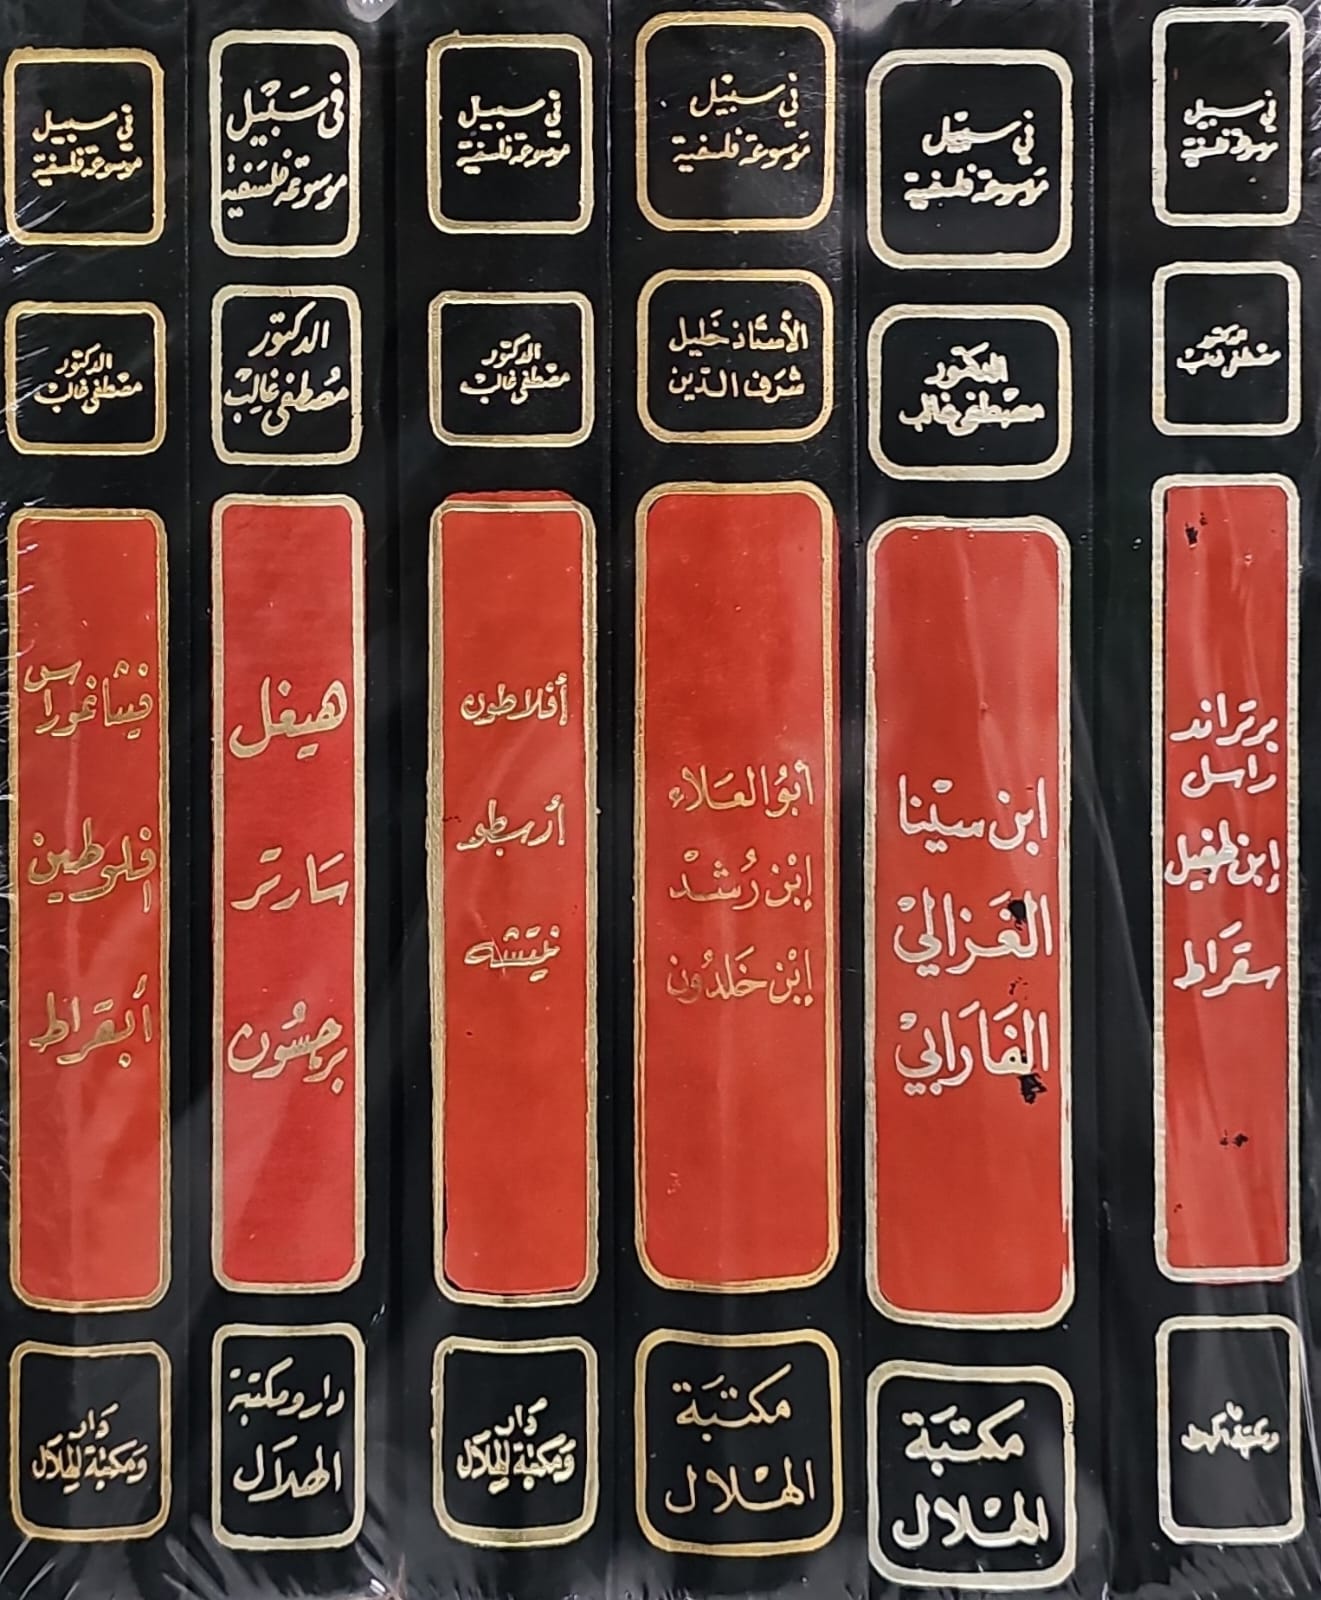 في سبيل
موسوعة فلسفية
الدكتور
مصطفى غالب
برتراند
راسل
إبن طفيل
سقراط
في سبيل
موسوعة فلسفية
الدكتور
مصطفى غالب
ابن سينا
الغزالي
الفارابي
مكتبة
الهلال
في سبيل
موسوعة فلسفية
الأستاذ خليل
شرف الدين
أبو العلاء
إبن رشد
إبن خلدون
مكتبة
الهلال
في سبيل
موسوعة فلسفية
الدكتور
مصطفى غالب
أفلاطون
أرسطو
نيتشه
دار
ومكتبة الهلال
في سبيل
موسوعة فلسفية
الدكتور
مصطفى غالب
هيغل
سارتر
برجسون
دار ومكتبة
الهلال
في سبيل
موسوعة فلسفية
الدكتور
مصطفى غالب
فيثاغوراس
إفلوطين
أبقراط
دار
ومكتبة الهلال